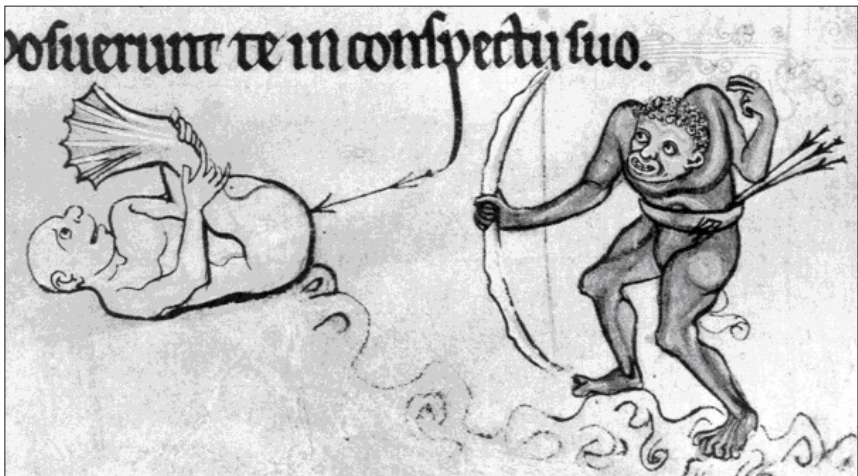 poſuerunt te in conſpectu ſuo.